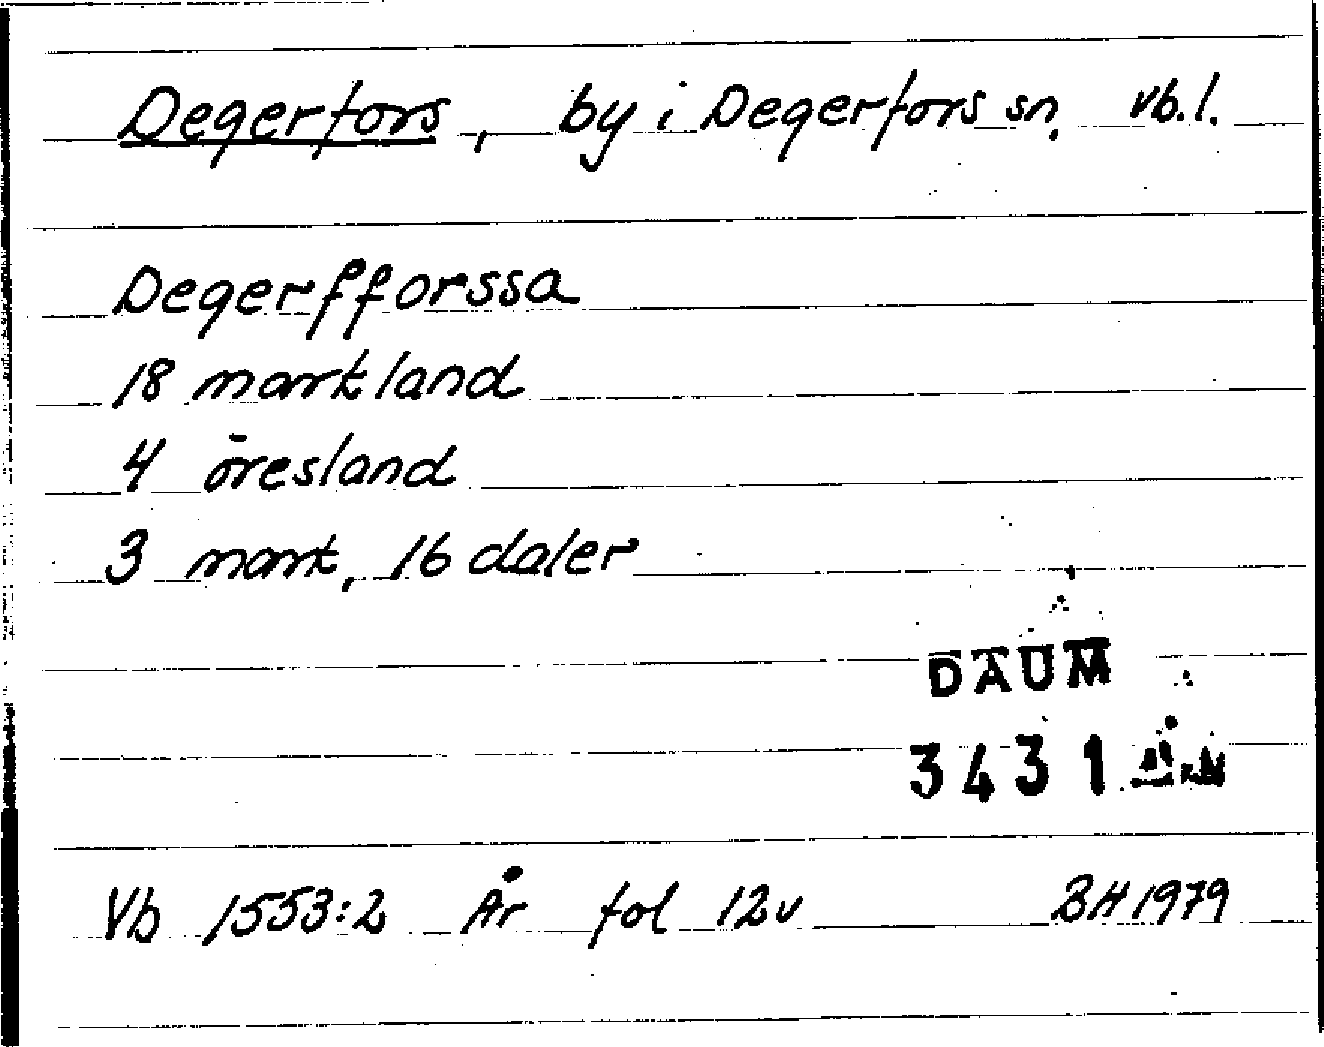 Degerfors, by i Degerfors sn. vb.l.
Degerfforssa
18 markland
4 öresland
3 mark, 16 daler
DAUM
3431
Vb 1553:2 År fol 12v BH 1979